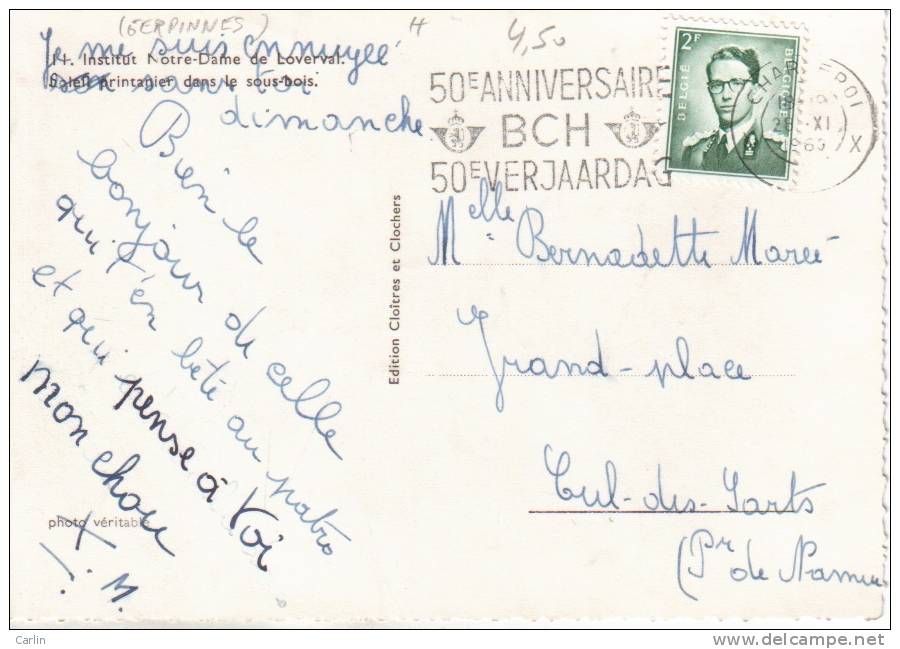 (GERPINNES)
H
4,50
14. Institut Notre-Dame de Loverval.
Soleil printanier dans le sous-bois.
Je me suis ennuyée
sans toi
dimanche
Bien le
bonjour de celle
qui t'en bête au patro
et qui pense à toi
mon chou
X
! M.
photo véritable
Edition Cloîtres et Clochers
50E ANNIVERSAIRE
BCH
50E VERJAARDAG
2F
BELGIE
BELGIQUE
CHARLEROI
XI
X
Melle Bernadette Marée
Grand-place
Cul-des-Sarts
(Pr de Namur
Carlin
www.delcampe.net